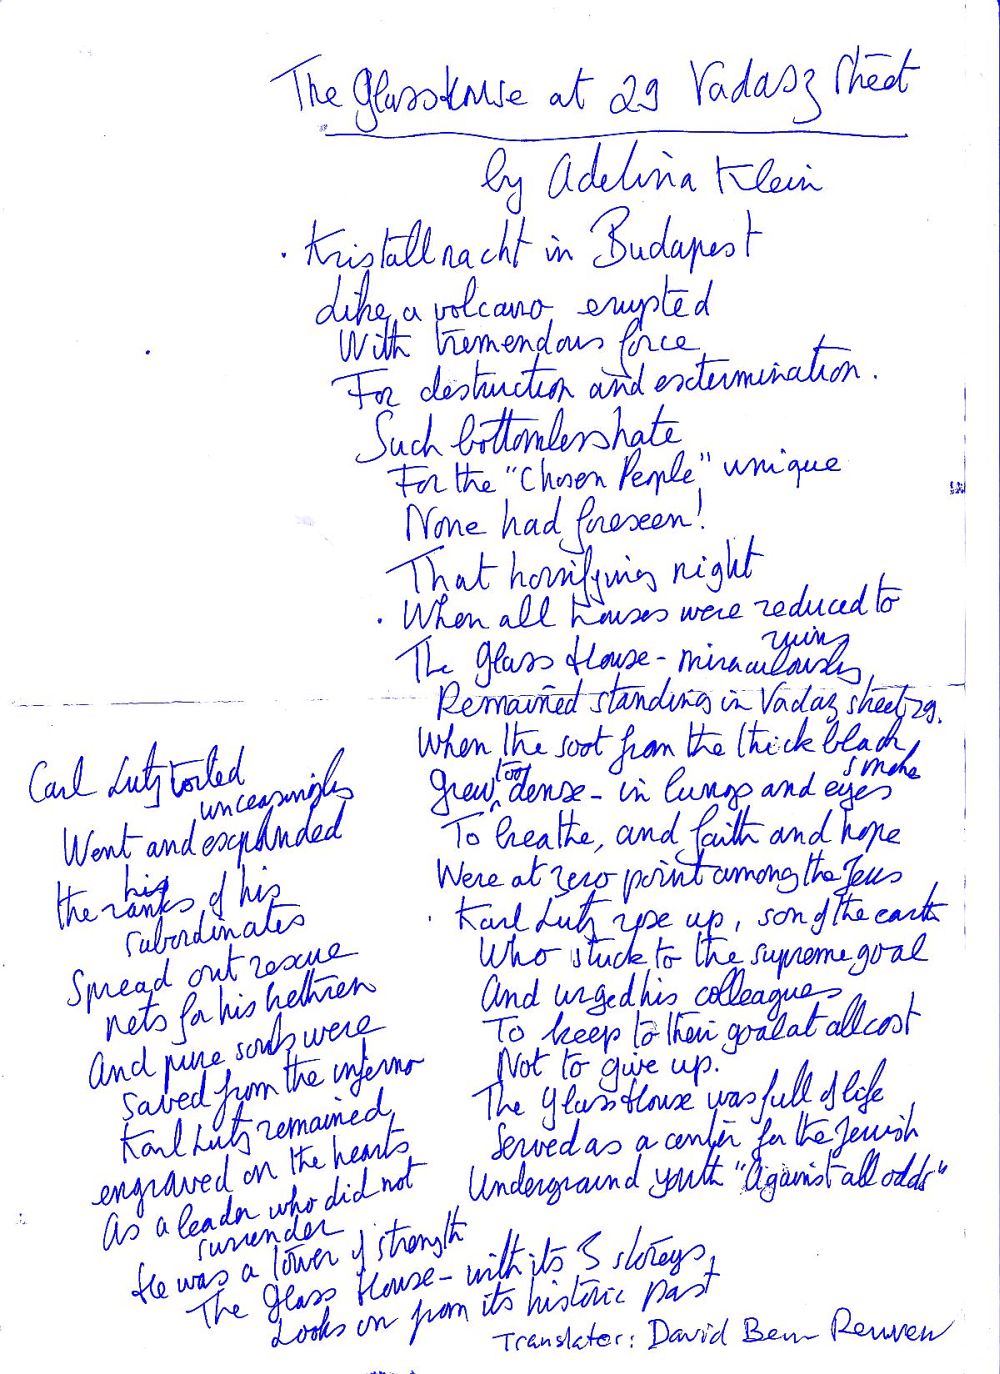 The Glass House at 29 Vadasz Street
by Adelina Klein
Kristallnacht in Budapest
Like a volcano erupted
With tremendous force
For destruction and extermination.
Such bottomless hate
For the "Chosen People" unique
None had foreseen!
That horrifying night
When all houses were reduced to
ruins
The Glass House - miraculously
Remained standing in Vadaz street 29.
When the soot from the thick black
smoke
Grew too dense - in lungs and eyes
To breathe, and faith and hope
Were at zero point among the Jews
Karl Lutz rose up, son of the earth
Who stuck to the supreme goal
And urged his colleagues
To keep to their goal at all cost
Not to give up.
The Glass House was full of life
Served as a center for the Jewish
Underground youth "Against all odds"
Carl Lutz toiled
unceasingly
Went and expanded
the ranks of his
subordinates
Spread out rescue
nets for his brethren
And pure souls were
saved from the inferno
Karl Lutz remained
engraved on the hearts
As a leader who did not
surrender
He was a tower of strength
The Glass House - with its 3 storeys,
Looks on from its historic past
Translator: David Ben Reuven